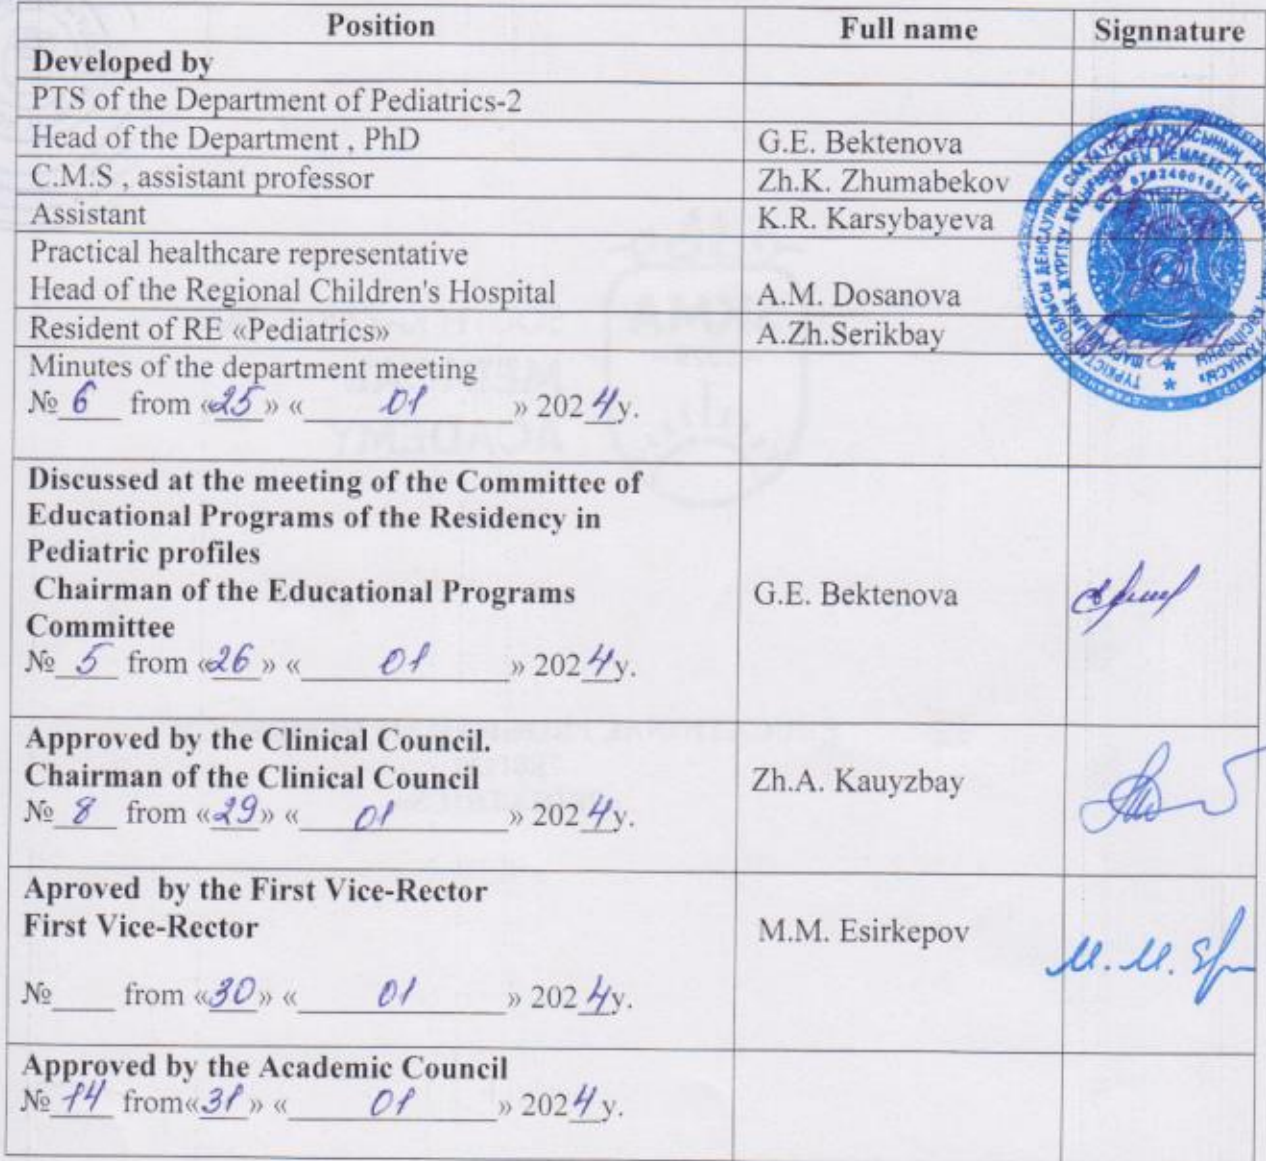 Position Full name Signnature
Developed by
PTS of the Department of Pediatrics-2
Head of the Department , PhD G.E. Bektenova
C.M.S , assistant professor Zh.K. Zhumabekov
Assistant K.R. Karsybayeva
Practical healthcare representative
Head of the Regional Children's Hospital A.M. Dosanova
Resident of RE «Pediatrics» A.Zh.Serikbay
Minutes of the department meeting
№ 6 from «25» « 01 » 2024y.
Discussed at the meeting of the Committee of
Educational Programs of the Residency in
Pediatric profiles
Chairman of the Educational Programs G.E. Bektenova
Committee
№ 5 from «26» « 01 » 2024y.
Approved by the Clinical Council.
Chairman of the Clinical Council Zh.A. Kauyzbay
№ 8 from «29» « 01 » 2024y.
Aproved by the First Vice-Rector
First Vice-Rector M.M. Esirkepov
№____ from «30» « 01 » 2024y.
Approved by the Academic Council
№ 14 from«31» « 01 » 2024y.